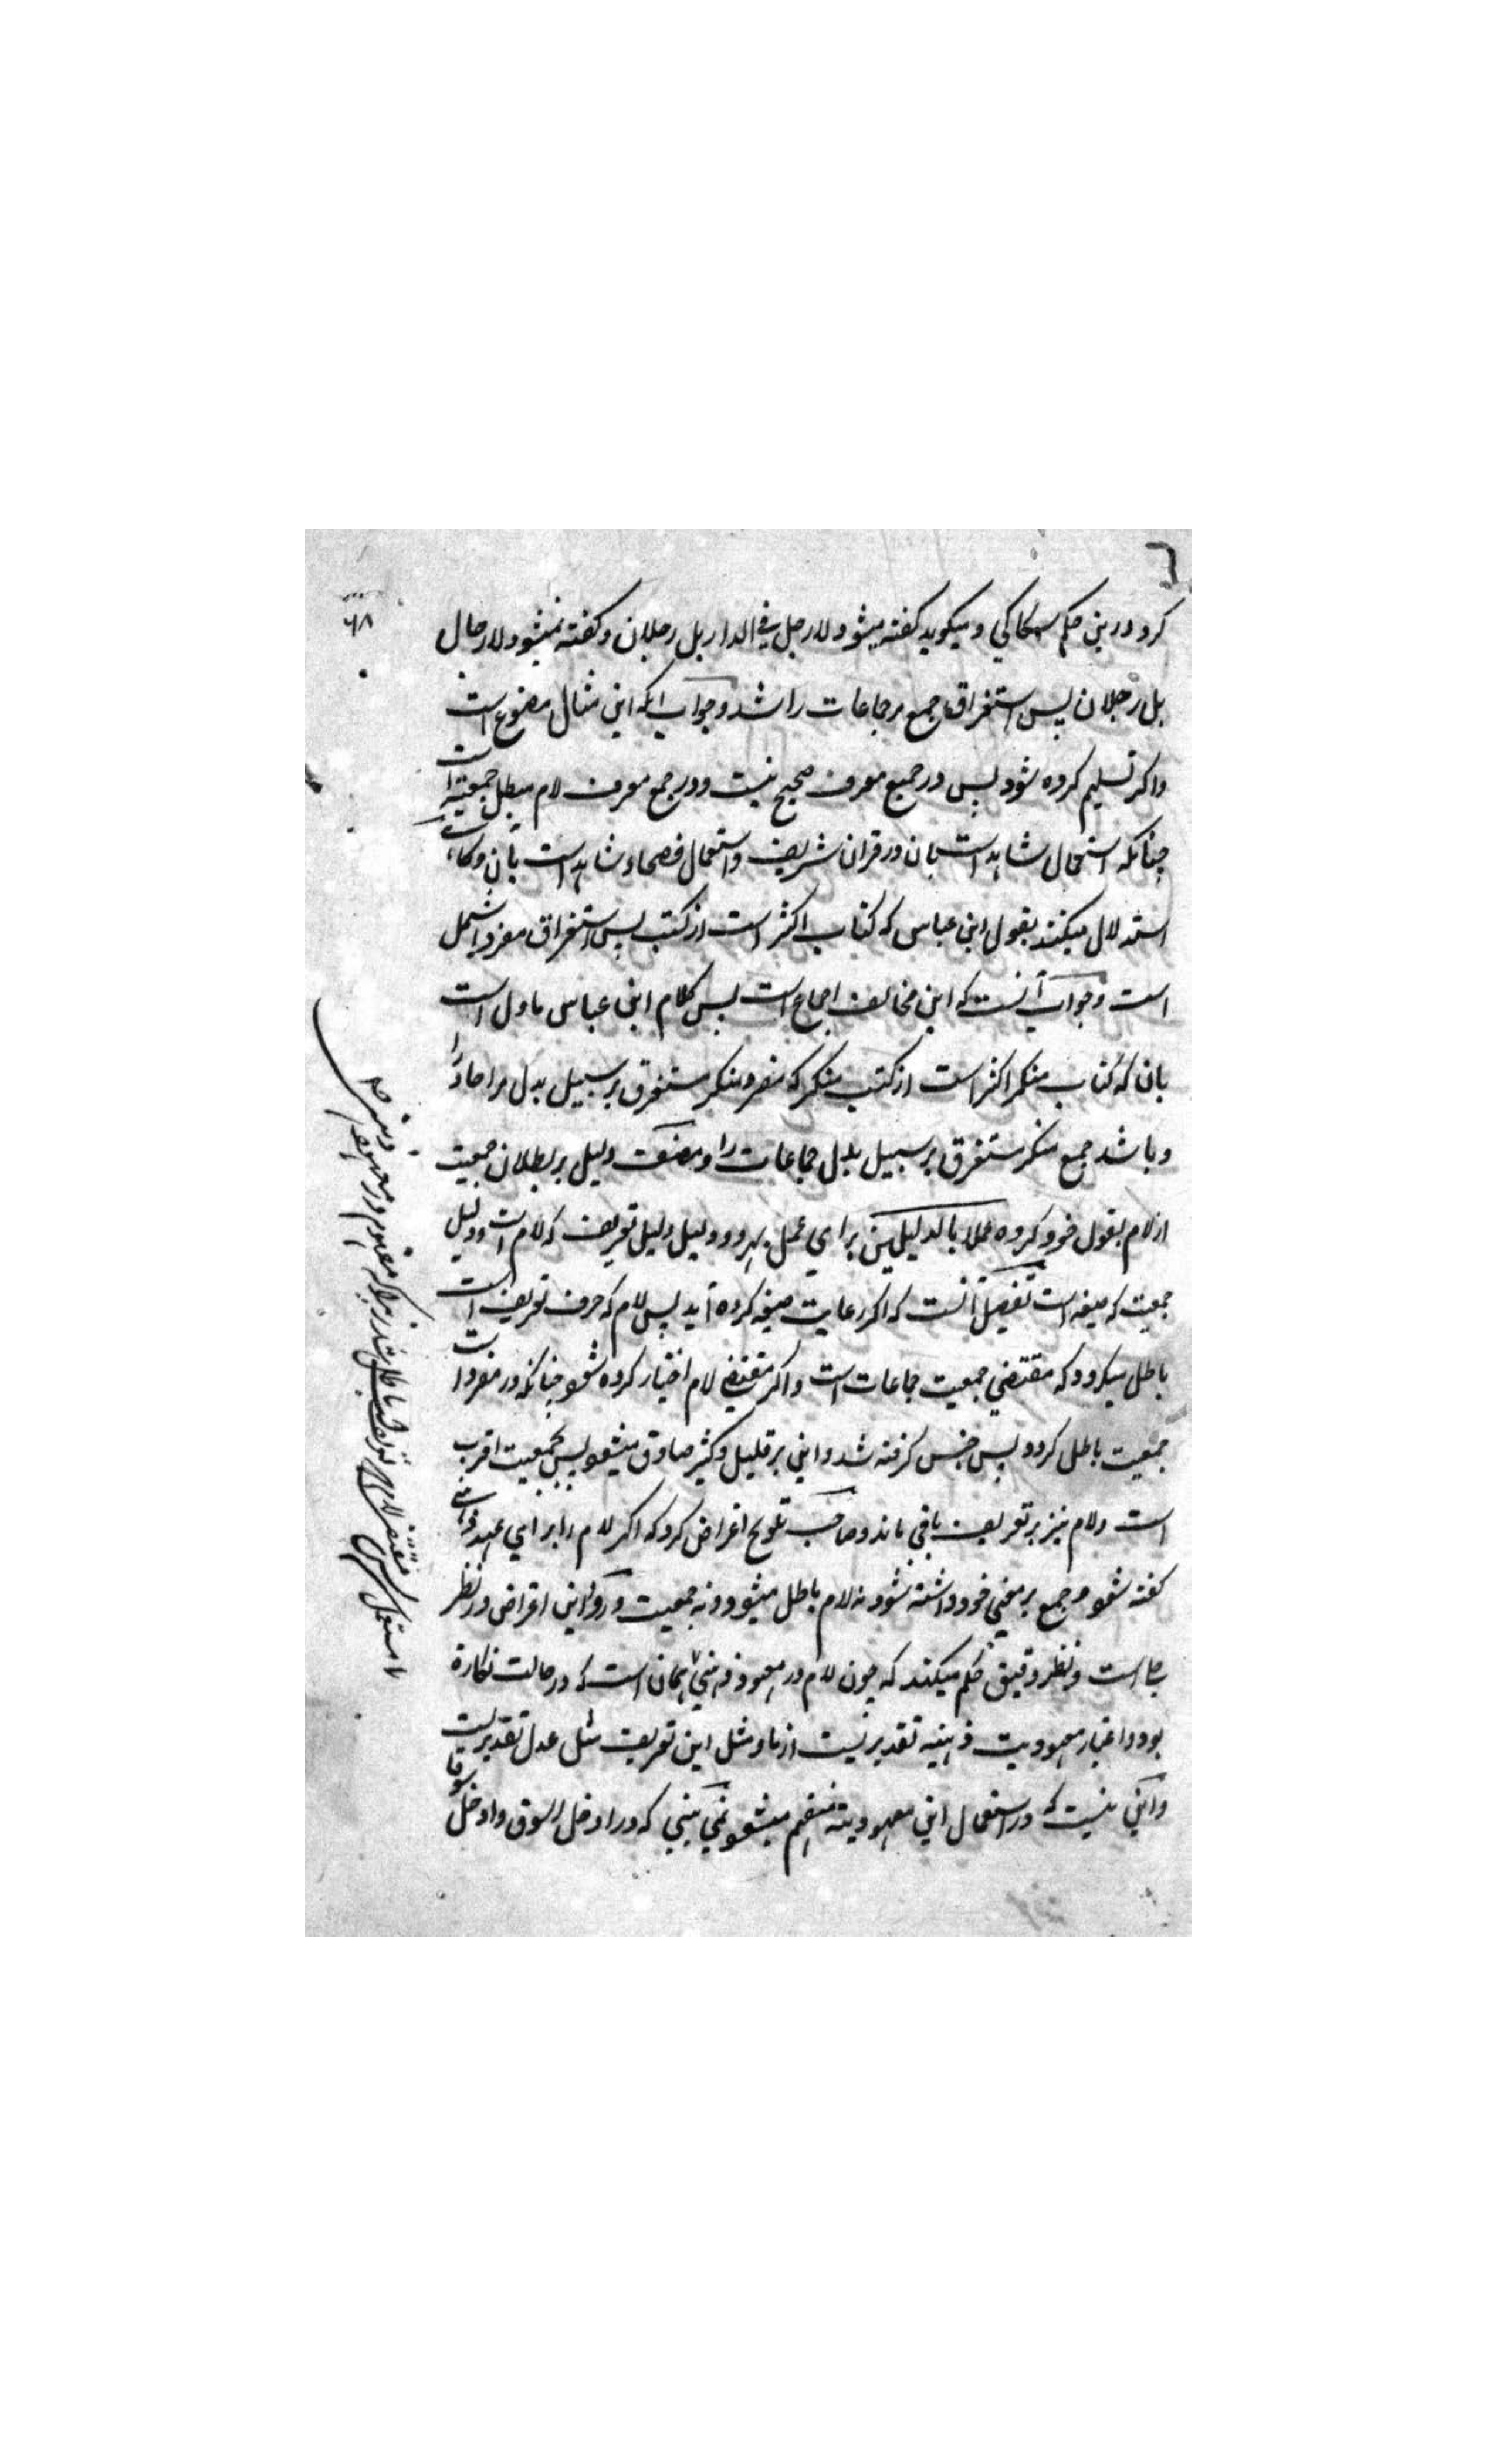 ۶۸
کرد درین حکم سکاکی و میکوید کفته میشود لا رجل فی الدار بل رجلان و کفته نمیشود لا رجال
بل رجلان پس استغراق جمع مر جماعات را شد و جواب انکه این مثال مصنوع است
واکر تسلیم کرده شود پس در جمیع معرف صحیح نیست و در جمع معرف لام مبطل جمعیة است
چنانکه استعمال شاهد است بان در قران شریف و استعمال فصحاء شاهد است بآن و
استدلال میکنند بقول ابن عباس که کتاب اکثر است از کتب پس استغراق مفرد اشمل
است و جواب آنست که این مخالف اجماع است پس کلام ابن عباس ماول است
بان که کتاب منکر اکثر است از کتب منکر که مفرد منکر مستغرق بر سبیل بدل مر احاد را
و باشد جمع منکر مستغرق بر سبیل بدل جماعات را و مصنف دلیل بر بطلان جمعیت
از لام بقول خود کرده عملا بالدلیلین برای عمل بهر دو دلیل دلیل تعریف که لام است و دلیل
جمعیت که صیغه است تفصیل آنست که اکر رعایت صیغه کرده آید پس لام که حرف تعریف است
باطل میکردد که مقتضی جمعیت جماعات است واکر مقتضی لام اختیار کرده شود چنانکه در مفرد است
جمعیت باطل کردد پس جنس کرفته شد و این بر قلیل و کثیر صادق میشود پس بجمعیت اقرب
است و لام نیز بر تعریف باقی ماند و صاحب تلویح اعراض کرد که اکر لام را برای عهد ذهنی
کفته شود و جمع بر معنی خود داشته شود نه لام باطل میشود و نه جمعیت و این اعراض در نظر
بجا است و نظر دقیق حکم میکند که چون لام در معهود ذهنی همان است که در حالت نکارة
بود و اعتبار معهودیت ذهنیه تقدیریست از ما و مثل این تعریف مثل عدل تقدیریست
و این نیست که در استعمال این معهودیته منفهم میشود نمی بینی که در ادخل السوق و ادخل سوقا